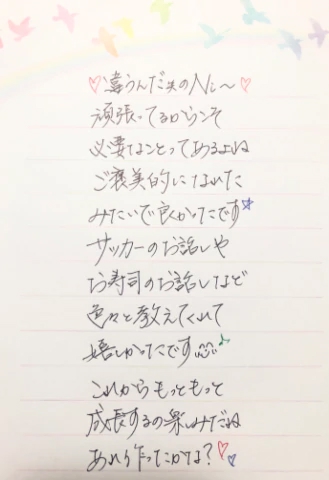 ♡違うんだよのNに〜♡
頑張ってるからこそ
必要なことってあるよね
ご褒美的になれた
みたいで良かったです☆
サッカーのお話しや
お寿司のお話しなど
色々と教えてくれて
嬉しかったです♪
これからもっともっと
成長するの楽しみだね
あれ作ったかな?♡♡